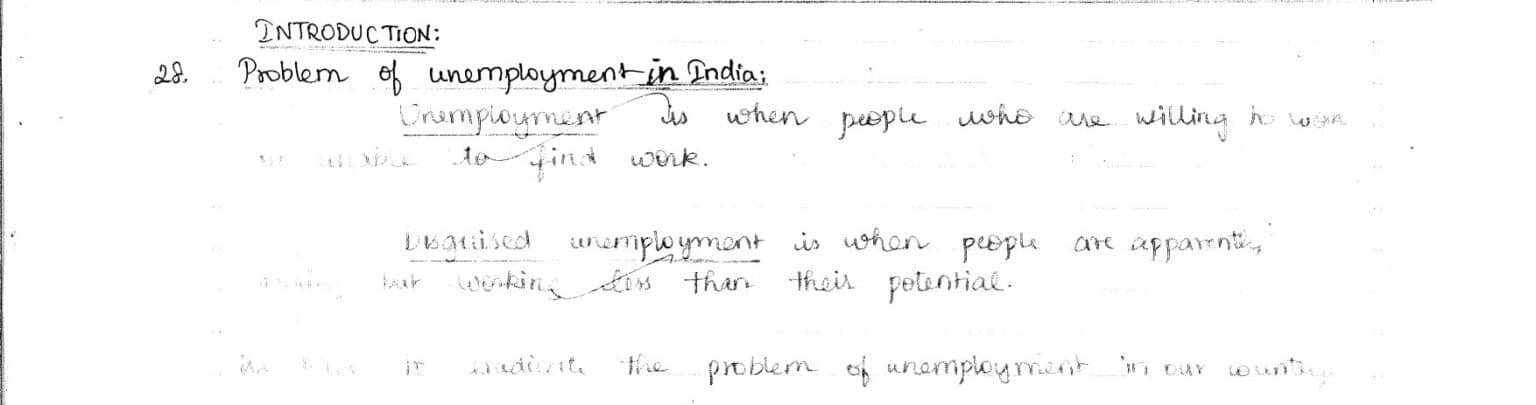 INTRODUCTION:
28. Problem of unemployment in India;
Unemployment is when people who are willing to work
unable to find work.
Disguised unemployment is when people are apparently
but working less than their potential.
eradicate the problem of unemployment in our country